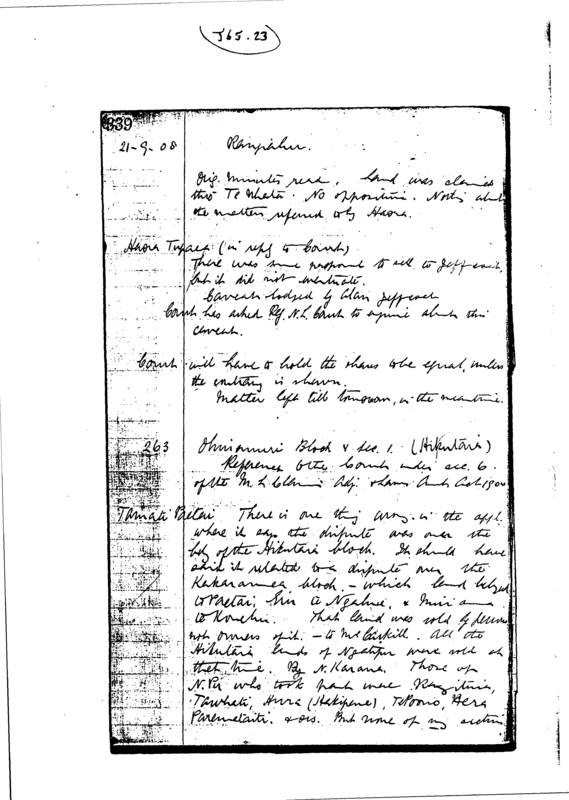 J65.23
339
21-9-08
Orig. minutes read. Land was claimed
thro Te Whata. No opposition. Nothing about
the matters referred to by Haora.
Haora Tupaea (in reply to Court)
There was some proposal to sell to
but it did not eventuate.
Caveat lodged by Alan
Court has asked Reg. N.L. Court to enquire about this
caveat.
Court will have to hold the shares to be equal, unless
the contrary is shewn.
Matter left till tomorrow, in the meantime.
263 Ohinemuri Block & Sec. 1. (Hikutaia)
Reference to the Court under sec. 6.
of the M. L. Claims Adj. & Laws
Tamati Paetai There is one thing wrong in the appl.
where it says the dispute was over the
bdy of the Hikutaia block. It should have
said it related to a dispute over the
Kakaramea block - which land belonged
to Paetai, & Miriama
That land was sold by persons
not owners of it. - to McCaskill. All the
Hikutaia lands of were sold at
that time. By N. Karaua. Those of
N. Pu who took part were
Tawhati, Hura Hera
&ors. But none of my section